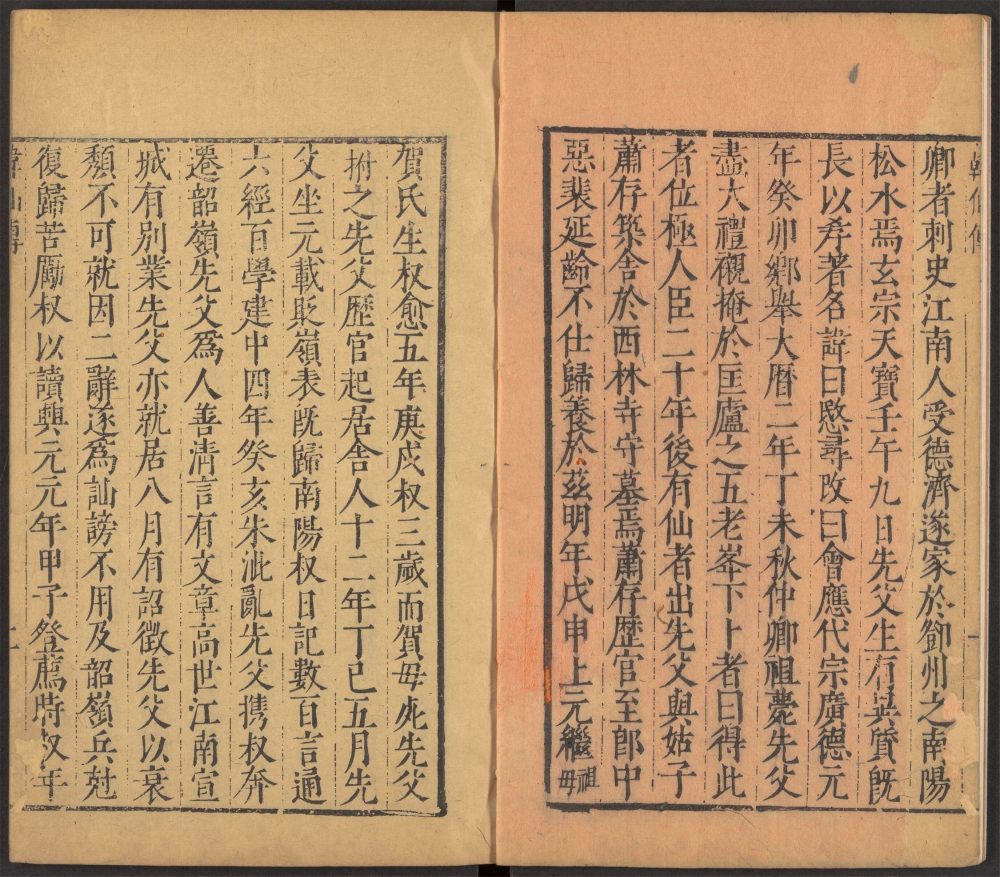 卿者刺史江南人受德濟遂家於鄧州之南陽
松水焉玄宗天寶壬午九日先父生有異質旣
長以孝著名諱曰愍尋改曰會應代宗廣德元
年癸卯鄉舉大曆二年丁未秋仲卿祖薨先父
盡大禮襯掩於匡廬之五老峯下卜者曰得此
者位極人臣二十年後有仙者出先父與姑子
蕭存築舍於西林寺守墓焉蕭存歴官至郎中
惡裴延齡不仕歸養於茲明年戊申上元繼祖母
賀氏生叔愈五年庚戌叔三歲而賀母死先父
拊之先父歷官起居舍人十二年丁巳五月先
父坐元載貶嶺表旣歸南陽叔日記數百言通
六經百學建中四年癸亥朱泚亂先父携叔奔
遷韶嶺先父爲人善清言有文章高世江南宣
城有別業先父亦就居八月有詔徵先父以衰
頽不可就因二辭遂爲訕謗不用及韶嶺兵尅
復歸苦勵叔以讀興元元年甲子登薦時叔年